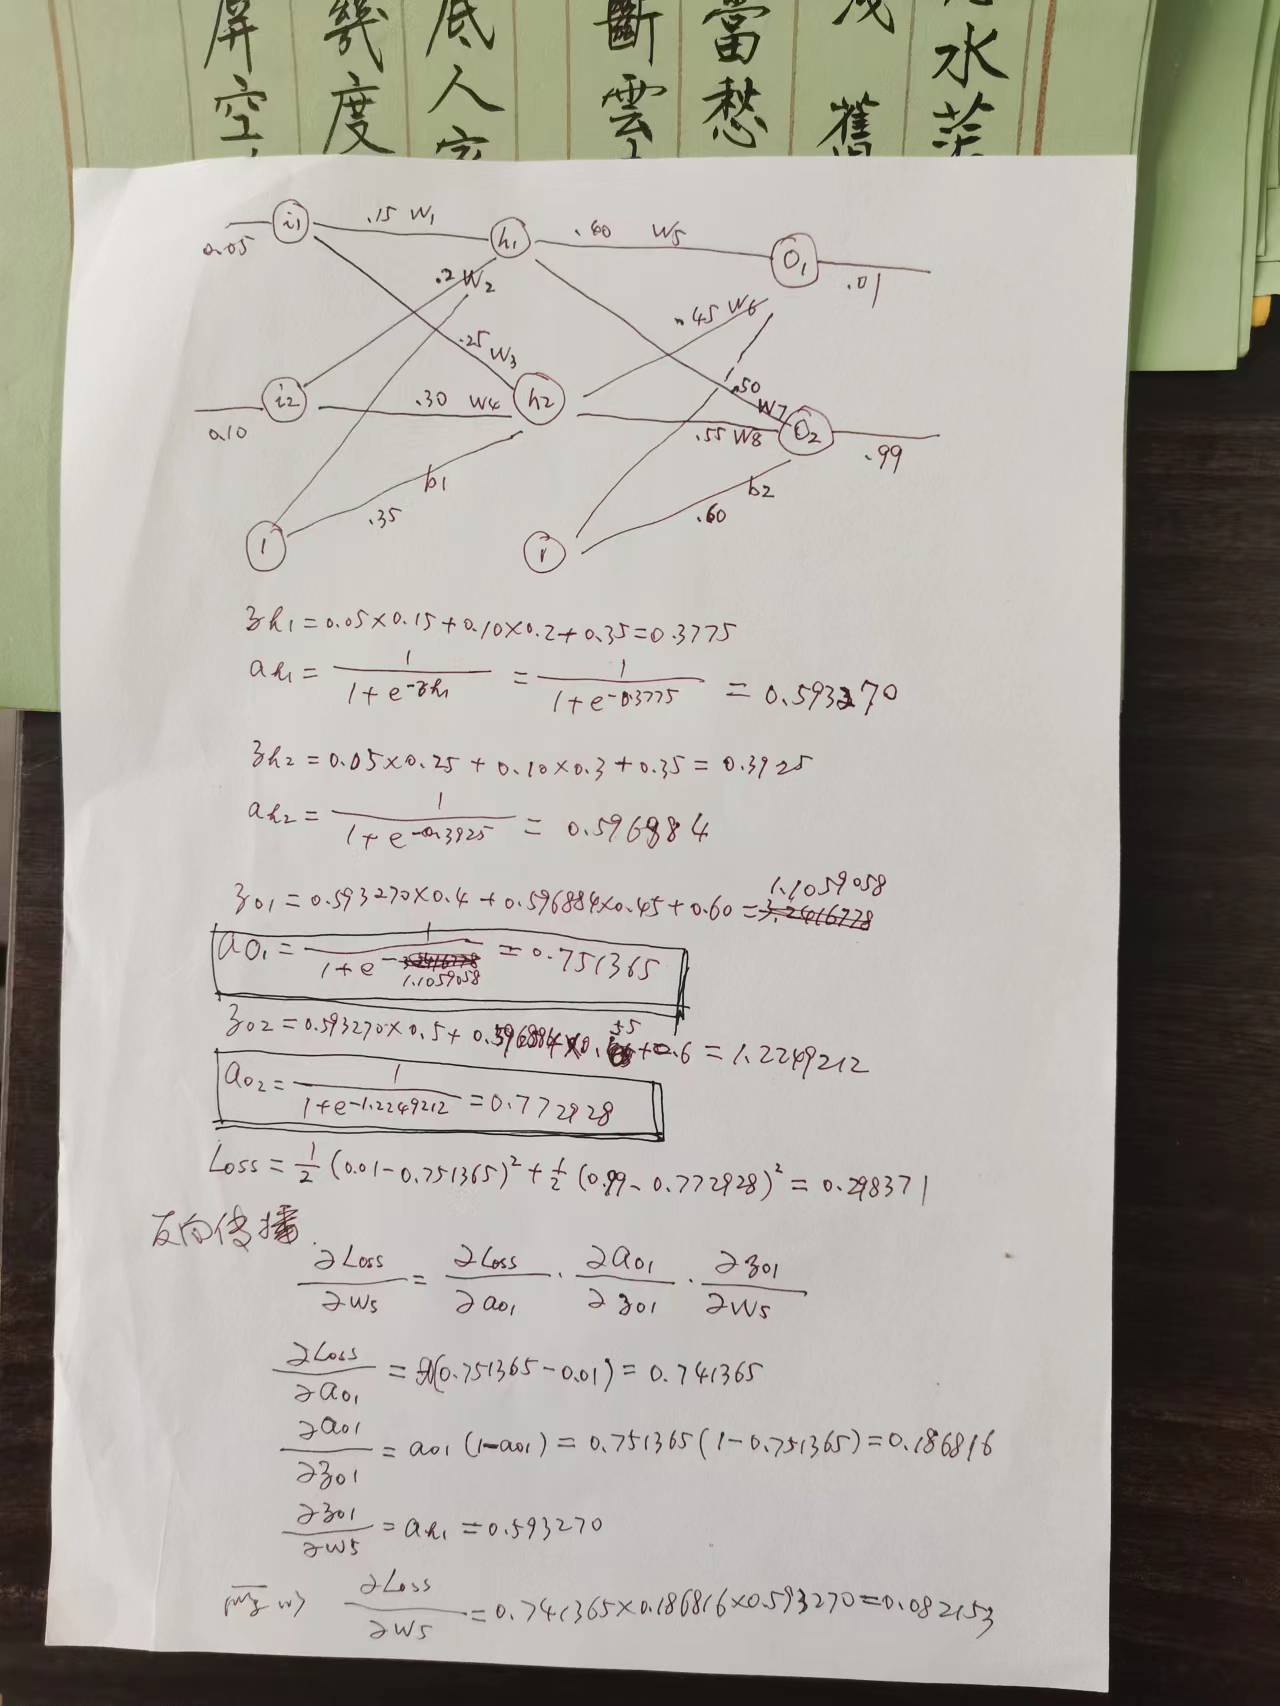 屏空
幾度
底人家
斷雲
當愁
茂舊
水茫
i1 .15 W1 h1 .40 W5 O1 .01
0.05
.2 W2
.45 W6
.25 W3
i2 .30 W4 h2 .50 W7
0.10 .55 W8 O2 .99
b1 b2
.35 .60
1 1
zh1=0.05×0.15+0.10×0.2+0.35=0.3775
ah1=1/(1+e^-zh1)=1/(1+e^-0.3775)=0.593270
zh2=0.05×0.25+0.10×0.3+0.35=0.3925
ah2=1/(1+e^-0.3925)=0.596884
zo1=0.593270×0.4+0.596884×0.45+0.60=1.1059058
ao1=1/(1+e^-1.1059058)=0.751365
zo2=0.593270×0.5+0.596884×0.55+0.6=1.2249212
ao2=1/(1+e^-1.2249212)=0.772928
Loss=1/2(0.01-0.751365)²+1/2(0.99-0.772928)²=0.298371
反向传播
∂Loss/∂W5=∂Loss/∂ao1·∂ao1/∂zo1·∂zo1/∂W5
∂Loss/∂ao1=(0.751365-0.01)=0.741365
∂ao1/∂zo1=ao1(1-ao1)=0.751365(1-0.751365)=0.186816
∂zo1/∂W5=ah1=0.593270
所以 ∂Loss/∂W5=0.741365×0.186816×0.593270=0.082153